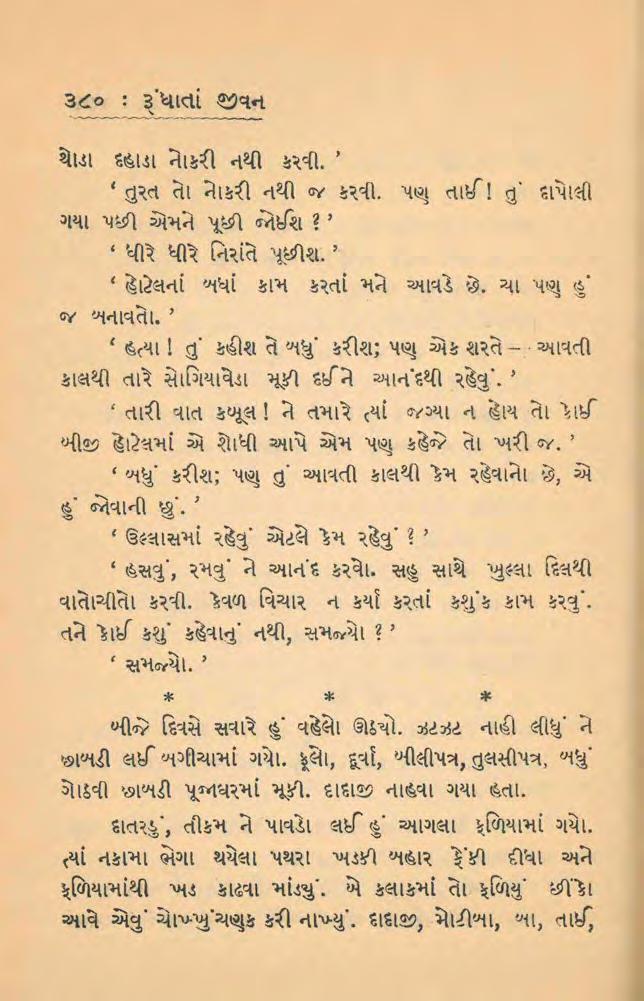 ૩૮૦ : રૂંધાતાં જીવન
થોડા દહાડા નોકરી નથી કરવી. ’
‘ તુરત તો નોકરી નથી જ કરવી. પણ તાઈ! તું દાપોલી
ગયા પછી એમને પૂછી જોઈશ ? ’
‘ ધીરે ધીરે નિરાંતે પૂછીશ. ’
‘ હોટેલનાં બધાં કામ કરતાં મને આવડે છે. ચા પણ હું
જ બનાવતો. ’
‘ હત્યા ! તું કહીશ તે બધું કરીશ; પણ એક શરતે – આવતી
કાલથી તારે સોગિયાવેડા મૂકી દઈને આનંદથી રહેવું. ’
‘ તારી વાત કબૂલ! ને તમારે ત્યાં જગ્યા ન હોય તો કોઈ
બીજી હોટેલમાં એ શોધી આપે એમ પણ કહેજે તો ખરી જ. ’
‘ બધું કરીશ; પણ તું આવતી કાલથી કેમ રહેવાનો છે, એ
હું જોવાની છું. ’
‘ ઉલ્લાસમાં રહેવું એટલે કેમ રહેવું ? ’
‘ હસવું, રમવું ને આનંદ કરવો. સહુ સાથે ખુલ્લા દિલથી
વાતોચીતો કરવી. કેવળ વિચાર ન કર્યા કરતાં કશુંક કામ કરવું.
તને કોઈ કશું કહેવાનું નથી, સમજ્યો ? ’
‘ સમજ્યો. ’
* * *
બીજે દિવસે સવારે હું વહેલો ઊઠ્યો. ઝટઝટ નાહી લીધું ને
છાબડી લઈ બગીચામાં ગયો. ફૂલો, દૂર્વા, બીલીપત્ર, તુલસીપત્ર, બધું
ગોઠવી છાબડી પૂજાઘરમાં મૂકી. દાદાજી નાહવા ગયા હતા.
દાતરડું, તીકમ ને પાવડો લઈ હું આગલા ફળિયામાં ગયો.
ત્યાં નકામા ભેગા થયેલા પથરા ખડકી બહાર ફેંકી દીધા અને
ફળિયામાંથી ખડ કાઢવા માંડ્યું. બે કલાકમાં તો ફળિયું છીંકો
આવે એવું ચોખ્ખુંચણક કરી નાખ્યું. દાદાજી, મોટીબા, બા, તાઈ,